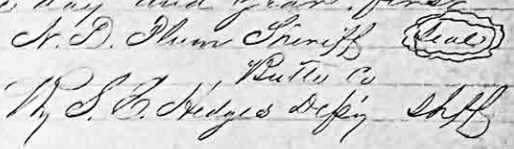 day and year first
N. D. Plum Sheriff Seal
Butte Co
By S. L. Hedges Dep'y Shff